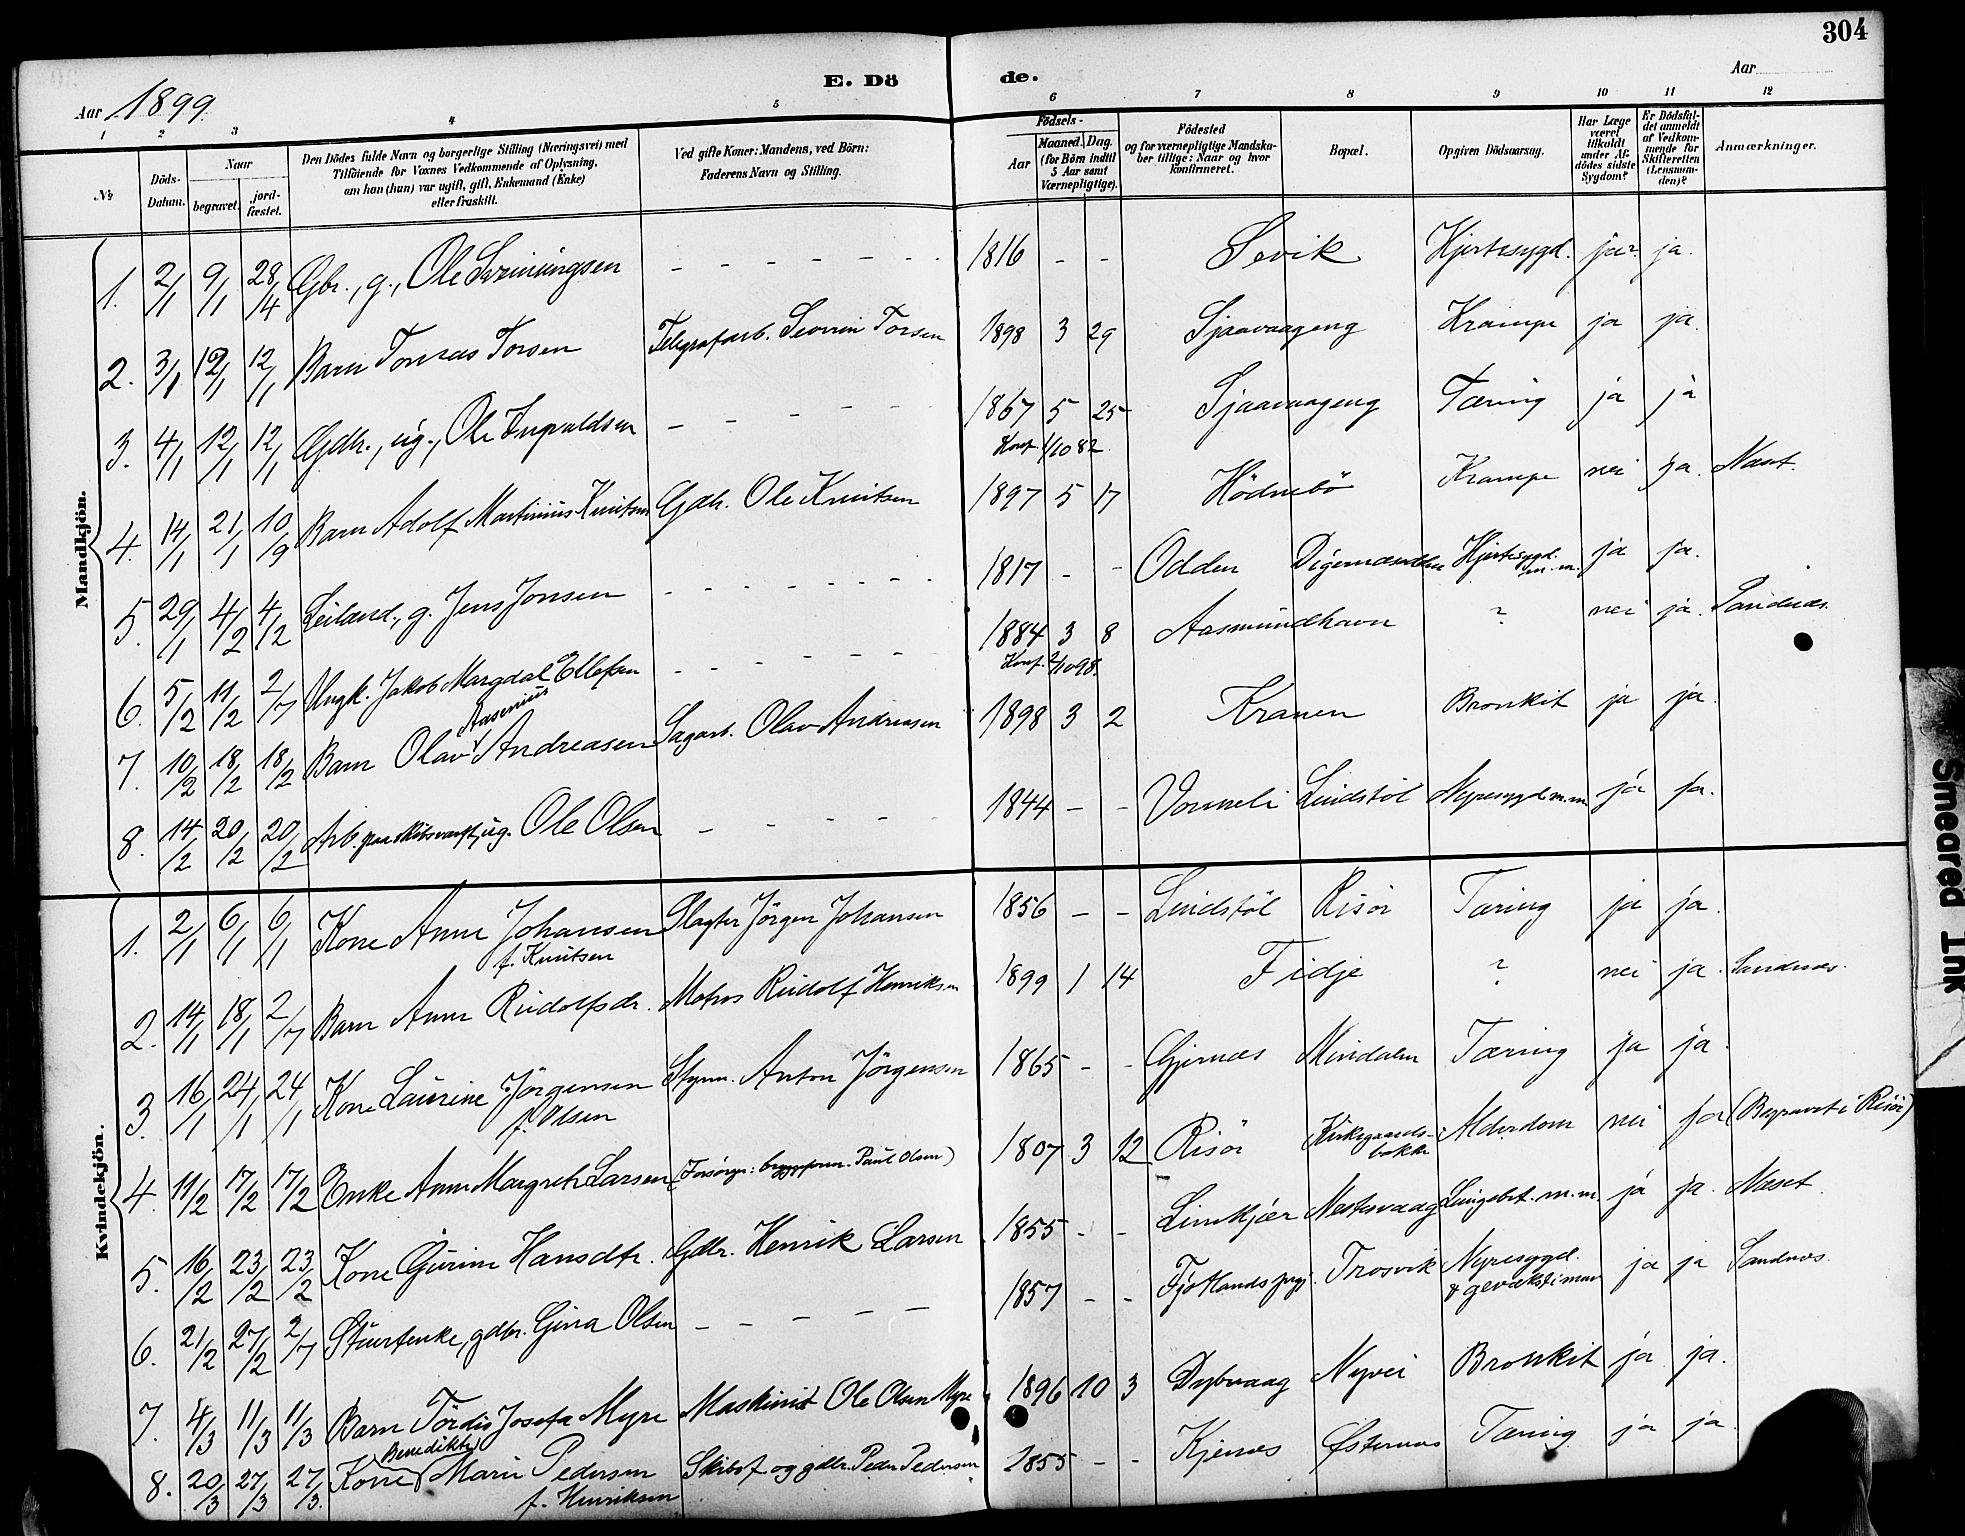 304
E. Dö de.
Aar 1899 Aar
1 2 3 4 5 6 7 8 9 10 11 12
№ Döds-Datum. Naar begravet. jord-fæstet. Den Dödes fulde Navn og borgerlige Stilling (Næringsvei) med Tilföiende for Voxnes Vedkommende af Oplysning, om han (hun) var ugift, gift, Enkemand (Enke) eller fraskilt. Ved gifte Koner: Mandens, ved Börn: Faderens Navn og Stilling. Födsels- Aar Maaned. Dag. (for Börn indtil 5 Aar samt Værnepligtige). Födested og for værnepligtige Mandskaber tillige: Naar og hvor konfirmeret. Bopæl. Opgiven Dödsaarsag. Har Læge været tilkaldt under Afdödes sidste Sygdom? Er Dödsfaldet anmeldt af Vedkommende for Skifteretten (Lensmanden)? Anmærkninger.
Mandkjön.
1. 2/1 9/1 28/4 Gbr., g., Ole - - - - - - - 1816 - - Sevik Hjertesygd. ja ja.
2. 3/1 12/1 12/1 Barn Tomas Torsen Telegrafarb. Severin Torsen 1898 3 29 Sjaavaageng Krampe ja ja.
3. 4/1 12/1 12/1 Gdb., ug., Ole - - - - - - 1867 5 25 Sjaavaageng Tæring ja ja
Konf. 1/10 82
4. 14/1 21/1 10/9 Barn Adolf Martinius Knutsen Gdb. Ole Knutsen 1897 5 17 Hödnebö Krampe nei ja. Næset
5. 29/1 4/2 4/12 Leiland., g. Jens Jonsen - - - - - - - 1817 - - Odden Hjertesygd. m. m. ja ja.
6. 5/2 11/2 2/7 Ungk. Jakob Margdal Ellefsen - - - - - - 1884 3 8 Aasmundhavn ? nei ja. Sandnæs.
Konf. 2/10 98.
7. 10/2 18/2 18/2 Barn Olav Aasenius Andreasen Sagarb. Olav Andreasen 1898 3 2 Kranen Bronkit ja ja.
8. 14/2 20/2 20/2 Arb. paa skibsværft, ug. Ole Olsen - - - - - 1844 - - Vormeli Lindstöl Nyresygd. m.m. ja ja.
Kvindekjön.
1. 2/1 6/1 6/1 Kone Anne Johansen Slagter Jörgen Johansen 1856 - - Lindstöl Risör Tæring ja ja.
f. Knutsen
2. 14/1 18/1 2/7 Barn Anne Rudolfsdr. Matros Rudolf Henriksen 1899 1 14 Fidje ? nei ja. Sandnæs.
3. 16/1 24/1 24/1 Kone Laurine Jörgensen Styrm. Anton Jörgensen 1865 - - Gjernæs Mindalen Tæring ja ja.
f. Olsen
4. 11/2 17/2 17/2 Enke Anne Margreth Larsen (Forsörger: Paul Olsen) 1807 3 12 Risör Kirkegaards-bakken Alderdom nei ja (Begravet i Risör)
5. 16/2 23/2 23/2 Kone Gurine Hansdtr. Gdbr. Henrik Larsen 1855 - - Limkjær Nestesvaag Lungebet. m. m. ja ja. Næset
6. 21/2 27/2 2/7 gdbr. Gina Olsen - - - - - 1857 - - Fjotlands prgj. Trosvik Nyresygd. ja ja Sandnæs.
7. 4/3 11/3 11/3 Barn Tordis Josefa Myre Maskinist Ole Olsen Myre 1896 10 3 Dybvaag Nyvei Bronkit ja ja.
8. 20/3 27/3 27/3. Kone (Benedikte) Marie Pedersen Skibsf. og gdbr. Peder Pedersen 1855 - - Kjenæs Østernæs Tæring ja ja.
f. Henriksen
Smeared Ink